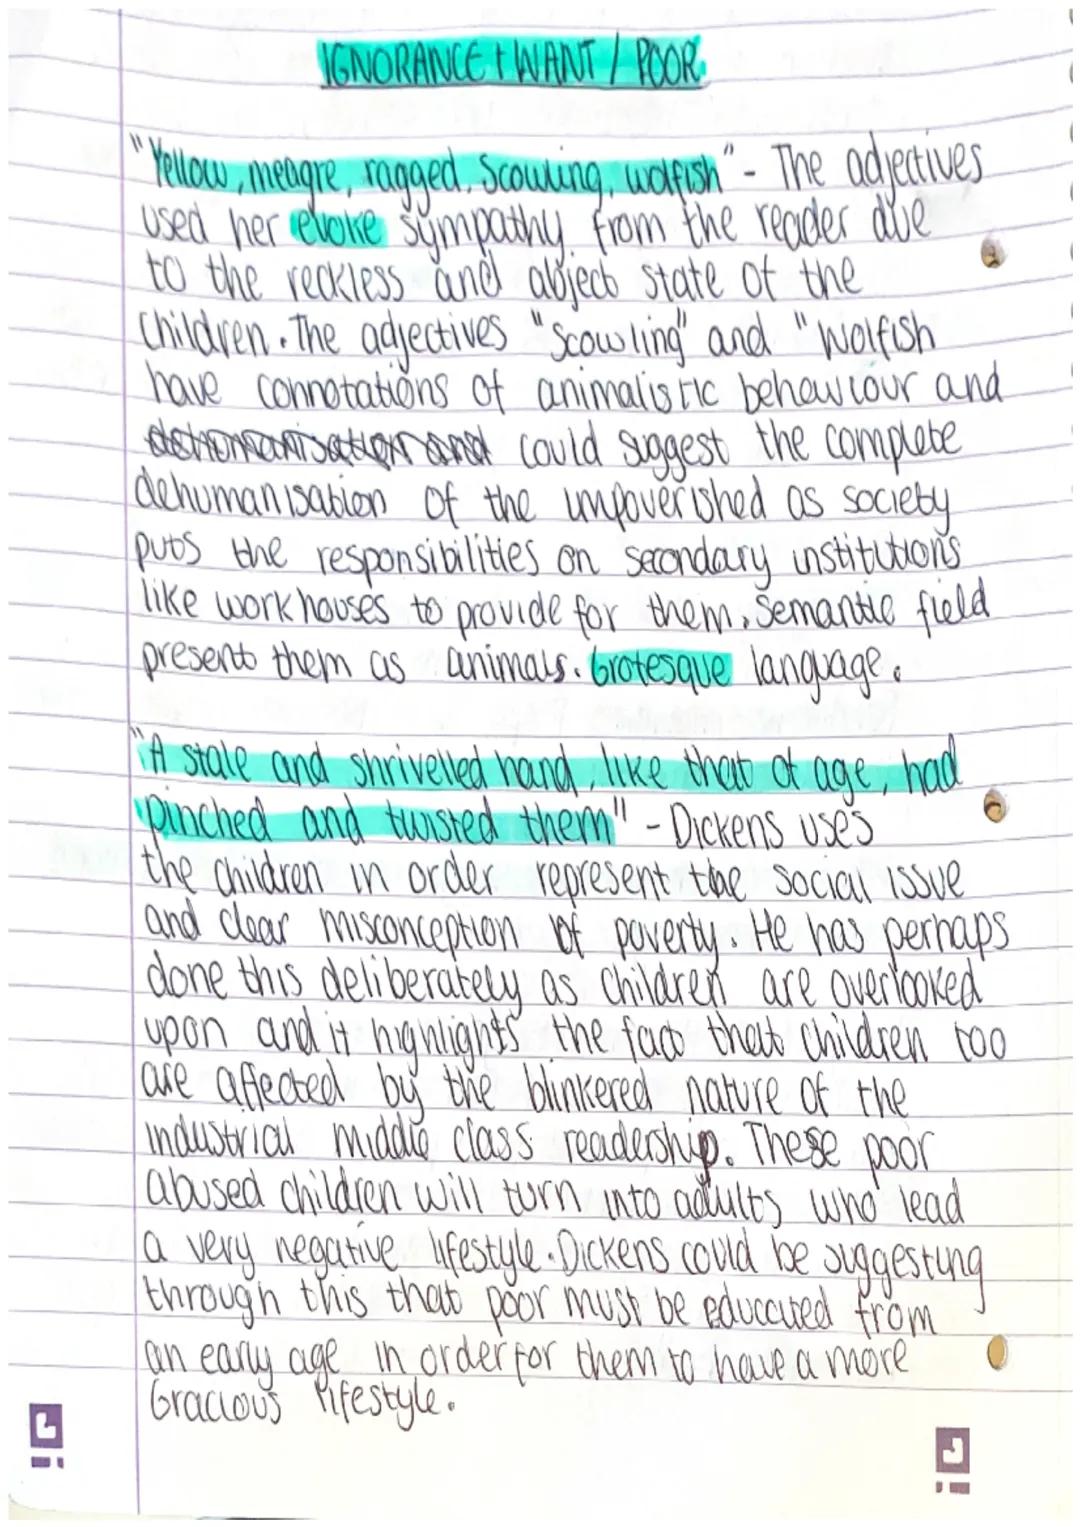 IGNORANCE + WANT / POOR
"Yellow, meagre, ragged, Scowling, wolfish" - The adjectives
used her evoke sympathy from the reader due
to the reckless and abject state of the
children. The adjectives "Scowling" and "Wolfish
have connotations of animalistic behaviour and
could suggest the complete
dehumanisation of the impoverished as society
puts the responsibilities on secondary institutions
like workhouses to provide for them. Semantic field
present them as animals. Grotesque language.
"A stale and shrivelled hand, like that of age, had
pinched and twisted them" - Dickens uses
the children in order represent the social issue
and clear misconception of poverty. He has perhaps
done this deliberately as children are overlooked
upon and it highlights the fact that children too
are affected by the blinkered nature of the
industrial middle class readership. These poor
abused children will turn into adults who lead
a very negative lifestyle. Dickens could be suggesting
through this that poor must be educated from
an early age in order for them to have a more
Gracious lifestyle.